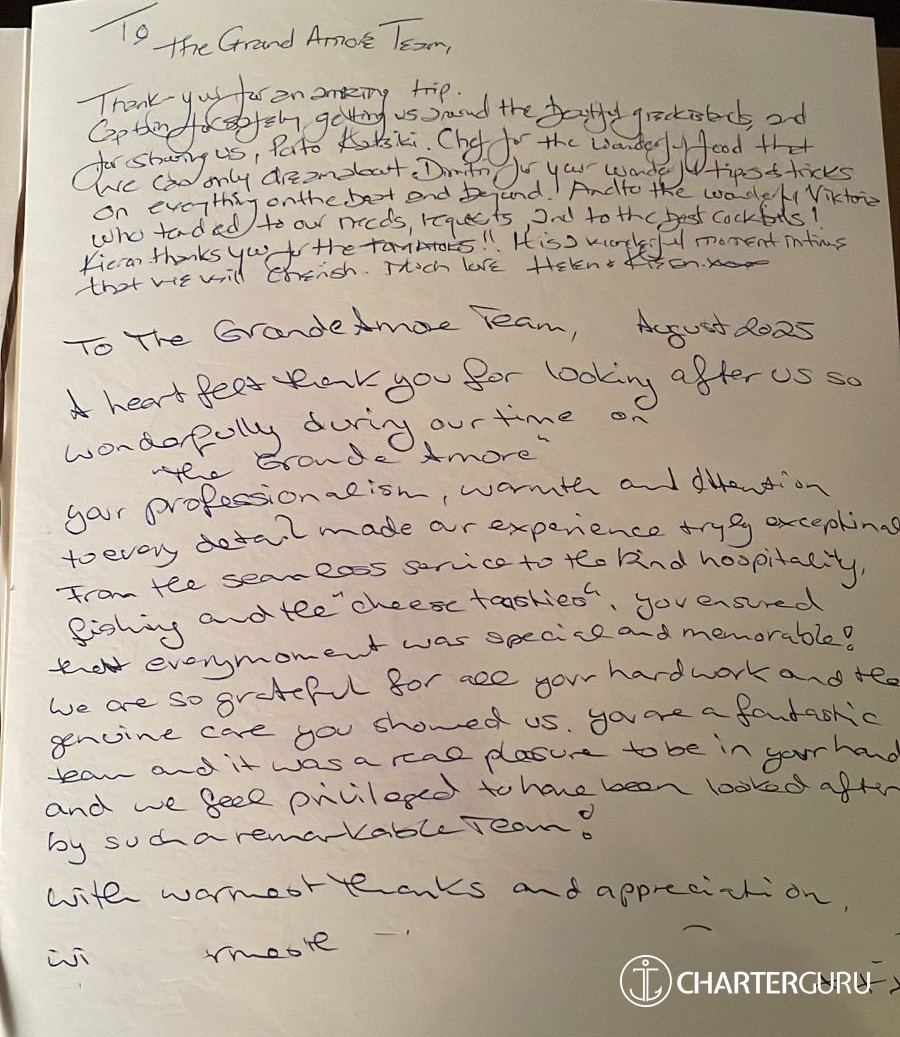 To
the Grand Amore Team,
Thank-you for an amazing trip.
Captain for safely getting us around the beautiful greek islands, and
for sharing us, Porto Katsiki. Chef for the wonderful food that
we can only dream about. Dimitri for your wonderful tips & tricks
on everything on the boat and beyond! And to the wonderful Viktoria
who tended to our needs, requests, and to the best cocktails!
Kieran thanks you for the tomatoes!! It is a wonderful moment in time
that we will cherish. Much love Helen & Kieran xxx
To The Grande Amore Team, August 2025
A heart felt thank you for looking after us so
wonderfully during our time on
"the Grande Amore"
your professionalism, warmth and attention
to every detail made our experience tryly exceptional
From the seamless service to the kind hospitality,
fishing and the "cheese toasties", you ensured
that every moment was special and memorable!
We are so grateful for all your hard work and the
genuine care you showed us. you are a fantastic
team and it was a real plasure to be in your hand
and we feel privileged to have been looked after
by such a remarkable Team!
with warmest thanks and appreciation,
CHARTERGURU